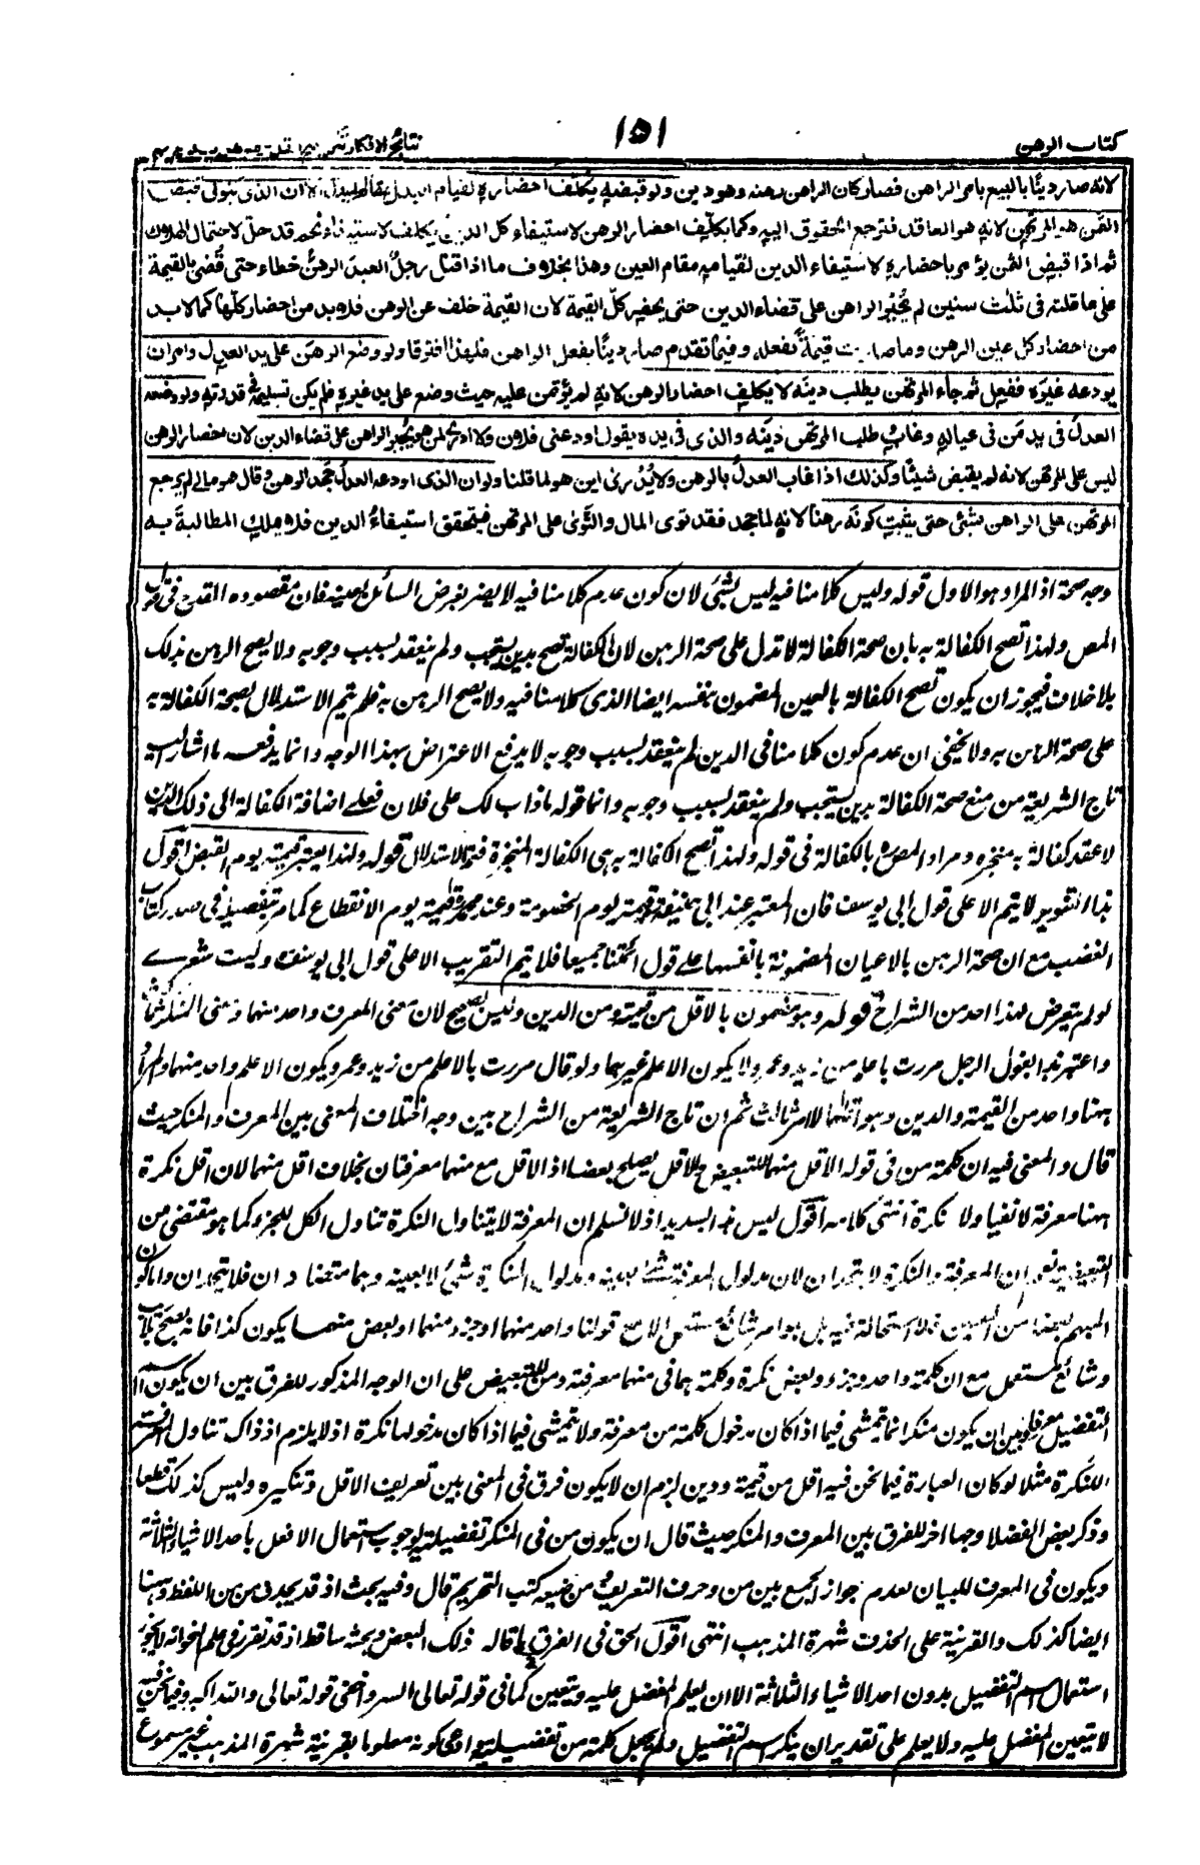 كتاب الرهن
١٥١
نتائج الافكار
لانه صار دينًا بالبيع بامر الراهن فصار كان الراهن رهنه وهو دين ولو قبضه يكلف احضاره لقيام البدل مقام المبدل لان الذى يتولى قبض
الثمن هو المرتهن لانه هو العاقد فترجع الحقوق اليه وكما يكلف احضار الرهن لاستيفاء كل الدين يكلف لاستيفاء نجم قد حل لاحتمال الهلاك
ثم اذا قبض الثمن يؤمر باحضاره لاستيفاء الدين لقيامه مقام العين وهذا بخلاف ما اذا قتل رجل العبد الرهن خطاء حتى قُضى بالقيمة
على عاقلته فى ثلث سنين لم يُجبر الراهن على قضاء الدين حتى يحضر كل القيمة لان القيمة خلف عن الرهن فلا بد من احضار كلها كما لا بد
من احضار كل عين الرهن وما صارت قيمة بفعله وفيما تقدم صار دينًا بفعل الراهن فلهذا افترقا ولو وضع الرهن على يد العدل وامر ان
يودعه غيره ففعل ثم جاء المرتهن يطلب دينه لا يكلف احضار الرهن لانه لم يؤتمن عليه حيث وضع على يد غيره فلم يكن تسليمه فى قدرته ولو وضعه
العدل فى يد من فى عياله وغاب وطلب المرتهن دينه والذى فى يده يقول اودعنى فلان ولا ادرى لمن هو يُجبر الراهن على قضاء الدين لان احضار الرهن
ليس على المرتهن لانه لم يقبض شيئًا وكذلك اذا غاب العدل بالرهن ولا يُدرى اين هو لما قلنا ولو ان الذى اودعه العدل جحد الرهن وقال هو مالى لم يرجع
المرتهن على الراهن بشئ حتى يثبت كونه رهنا لانه لما جحد فقد توى المال والتوى على المرتهن فيتحقق استيفاءُ الدين فلا يملك المطالبة به
وجه صحة اذ المراد هو الاول قوله وليس كلامنا فيه ليس بشئ لان كون عدم كلامنا فيه لا يضر بغرض السائل بل يعينه فان مقصوده القدح فى قول
المص ولهذا تصح الكفالة به بان صحة الكفالة لا تدل على صحة الرهن لان الكفالة تصح بدين يستجب ولم ينعقد بسبب وجوبه ولا يصح الرهن بذلك
بلا خلاف فيجوز ان يكون تصح الكفالة بالعين المضمون بنفسه ايضا الذى كلامنا فيه ولا يصح الرهن به فلم يتم الاستدلال بصحة الكفالة به
على صحة الرهن به ولا يخفى ان عدم كون كلامنا فى الدين لم ينعقد بسبب وجوبه لا يدفع الاعتراض بهذا الوجه وانما يدفعه ما اشار اليه
تاج الشريعة من منع صحة الكفالة بدين يستجب ولم ينعقد بسبب وجوبه وانما قوله ما ذاب لك على فلان فعلى اضافة الكفالة الى ذلك الدين
لا عقد كفالة به منجزه ومراد المصره بالكفالة فى قوله ولهذا تصح الكفالة به هى الكفالة المنجزة فتم الاستدلال قوله ولهذا يعتبر قيمته يوم القبض اقول
هذا التقوير لا يتم الا على قول ابى يوسف فان المعتبر عند ابى حنيفة قيمته يوم الخصومة وعند محمد قيمته يوم الانقطاع كما مر تفصيله فى صدر كتاب
الغضب مع ان صحة الرهن بالاعيان المضمونة بانفسها على قول ائمتنا جميعا فلا يتم التقريب الا على قول ابى يوسف وليت شعرى
لو لم يتعرض لهذا احد من الشراح قوله وهو مضمون بالاقل من قيمته ومن الدين وليس بصحيح لان معنى المعرف واحد منهما ومعنى المنكر
واعتبر هذا بقول الرجل مررت باعلم من زيد وعمرو لا يكون الاعلم غيرهما ولو قال مررت بالاعلم من زيد وعمرو يكون الاعلم واحد منهما والمراد
ههنا واحد من القيمة والدين وهو اقلهما لا امر ثالث ثم ان تاج الشريعة من الشراح بين وجه اختلاف المعنى بين المعرف والمنكر حيث
قال والمعنى فيه ان كلمة من فى قوله الاقل منهما للتبعيض والاقل يصلح بعضا اذ الاقل مع منهما معرفتان بخلاف اقل منهما لان اقل نكرة
ههنا معرفة لا نفيا ولا نكرة انتهى كلامه اقول ليس هذا بسديد اذ لا نسلم ان المعرفة لا يتناول النكرة تناول الكل للجزء كما هو مقتضى من
التبعيضية نعم ان المعرفة والنكرة لا يتحدان لان مدلول المعرفة شئ بعينه ومدلول النكرة شئ لا بعينه وهما متضادان فلا يتحدان واما كون
المبهم بعضا من المعين فلا استحالة فيه بل هو امر شائع مستعمل الا مع قولنا واحد منهما او جزء منهما او بعض منهما يكون كذا فانه يصح
وشائع مستعمل مع ان كلمة واحد وجزء وبعض نكرة وكلمة هما فى منهما معرفة ومن للتبعيض على ان الوجه المذكور للفرق بين ان يكون اسم
التفضيل معرفا وبين ان يكون منكرا انما يتمشى فيما اذا كان مدخول كلمة من معرفة ولا يتمشى فيما اذا كان مدخولها نكرة اذ لا يلزم اذ ذاك تناول المعرفة
للنكرة مثلا لو كان العبارة فيما نحن فيه اقل من قيمة ودين لزم ان لا يكون فرق فى المعنى بين تعريف الاقل وتنكيره وليس كذلك قطعا
وذكر بعض الفضلا وجها اخر للفرق بين المعرف والمنكر حيث قال ان يكون من فى المنكر تفضيلية لوجوب استعمال الافعل باحد الاشياء الثلاثة
ويكون فى المعرف للبيان لعدم جواز الجمع بين من وحرف التعريف من ضيعه كتب التحريم قال وفيه بحث اذ قد يحذف من من اللفظ وههنا
ايضا كذلك والقرنية على الحذف شهرة المذهب انتهى اقول الحق فى الفرق ما قاله ذلك البعض وبحثه ساقط اذ قد تقرر فى علم النحو انه لا يجوز
استعمال اسم التفضيل بدون احد الاشياء الثلاثة الا ان يعلم المفضل عليه ويتعين كما فى قوله تعالى السر واخفى قوله تعالى والله اكبر وفيما نحن فيه
لا يتعين المفضل عليه ولا يعلم على تقدير ان ينكر اسم التفضيل ولم يجعل كلمة من تفضيلية وادعى كونه معلوما بقرنية شهرة المذهب غير مسموع